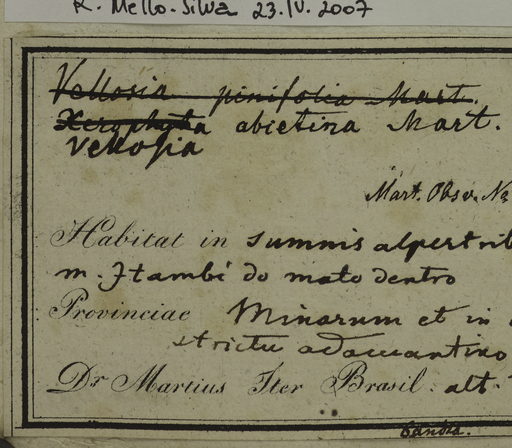 R. Mello-Silva 23.IV.2007
Vellosia pinifolia Mart.
Xerophyta abietina Mart.
Vellosia
Mart. Obs. No
Habitat in summis alpestrib
m. Itambé do mato dentro
Provinciae Minarum et in
strictu adamantino
Dr Martius Iter Brasil. alt.